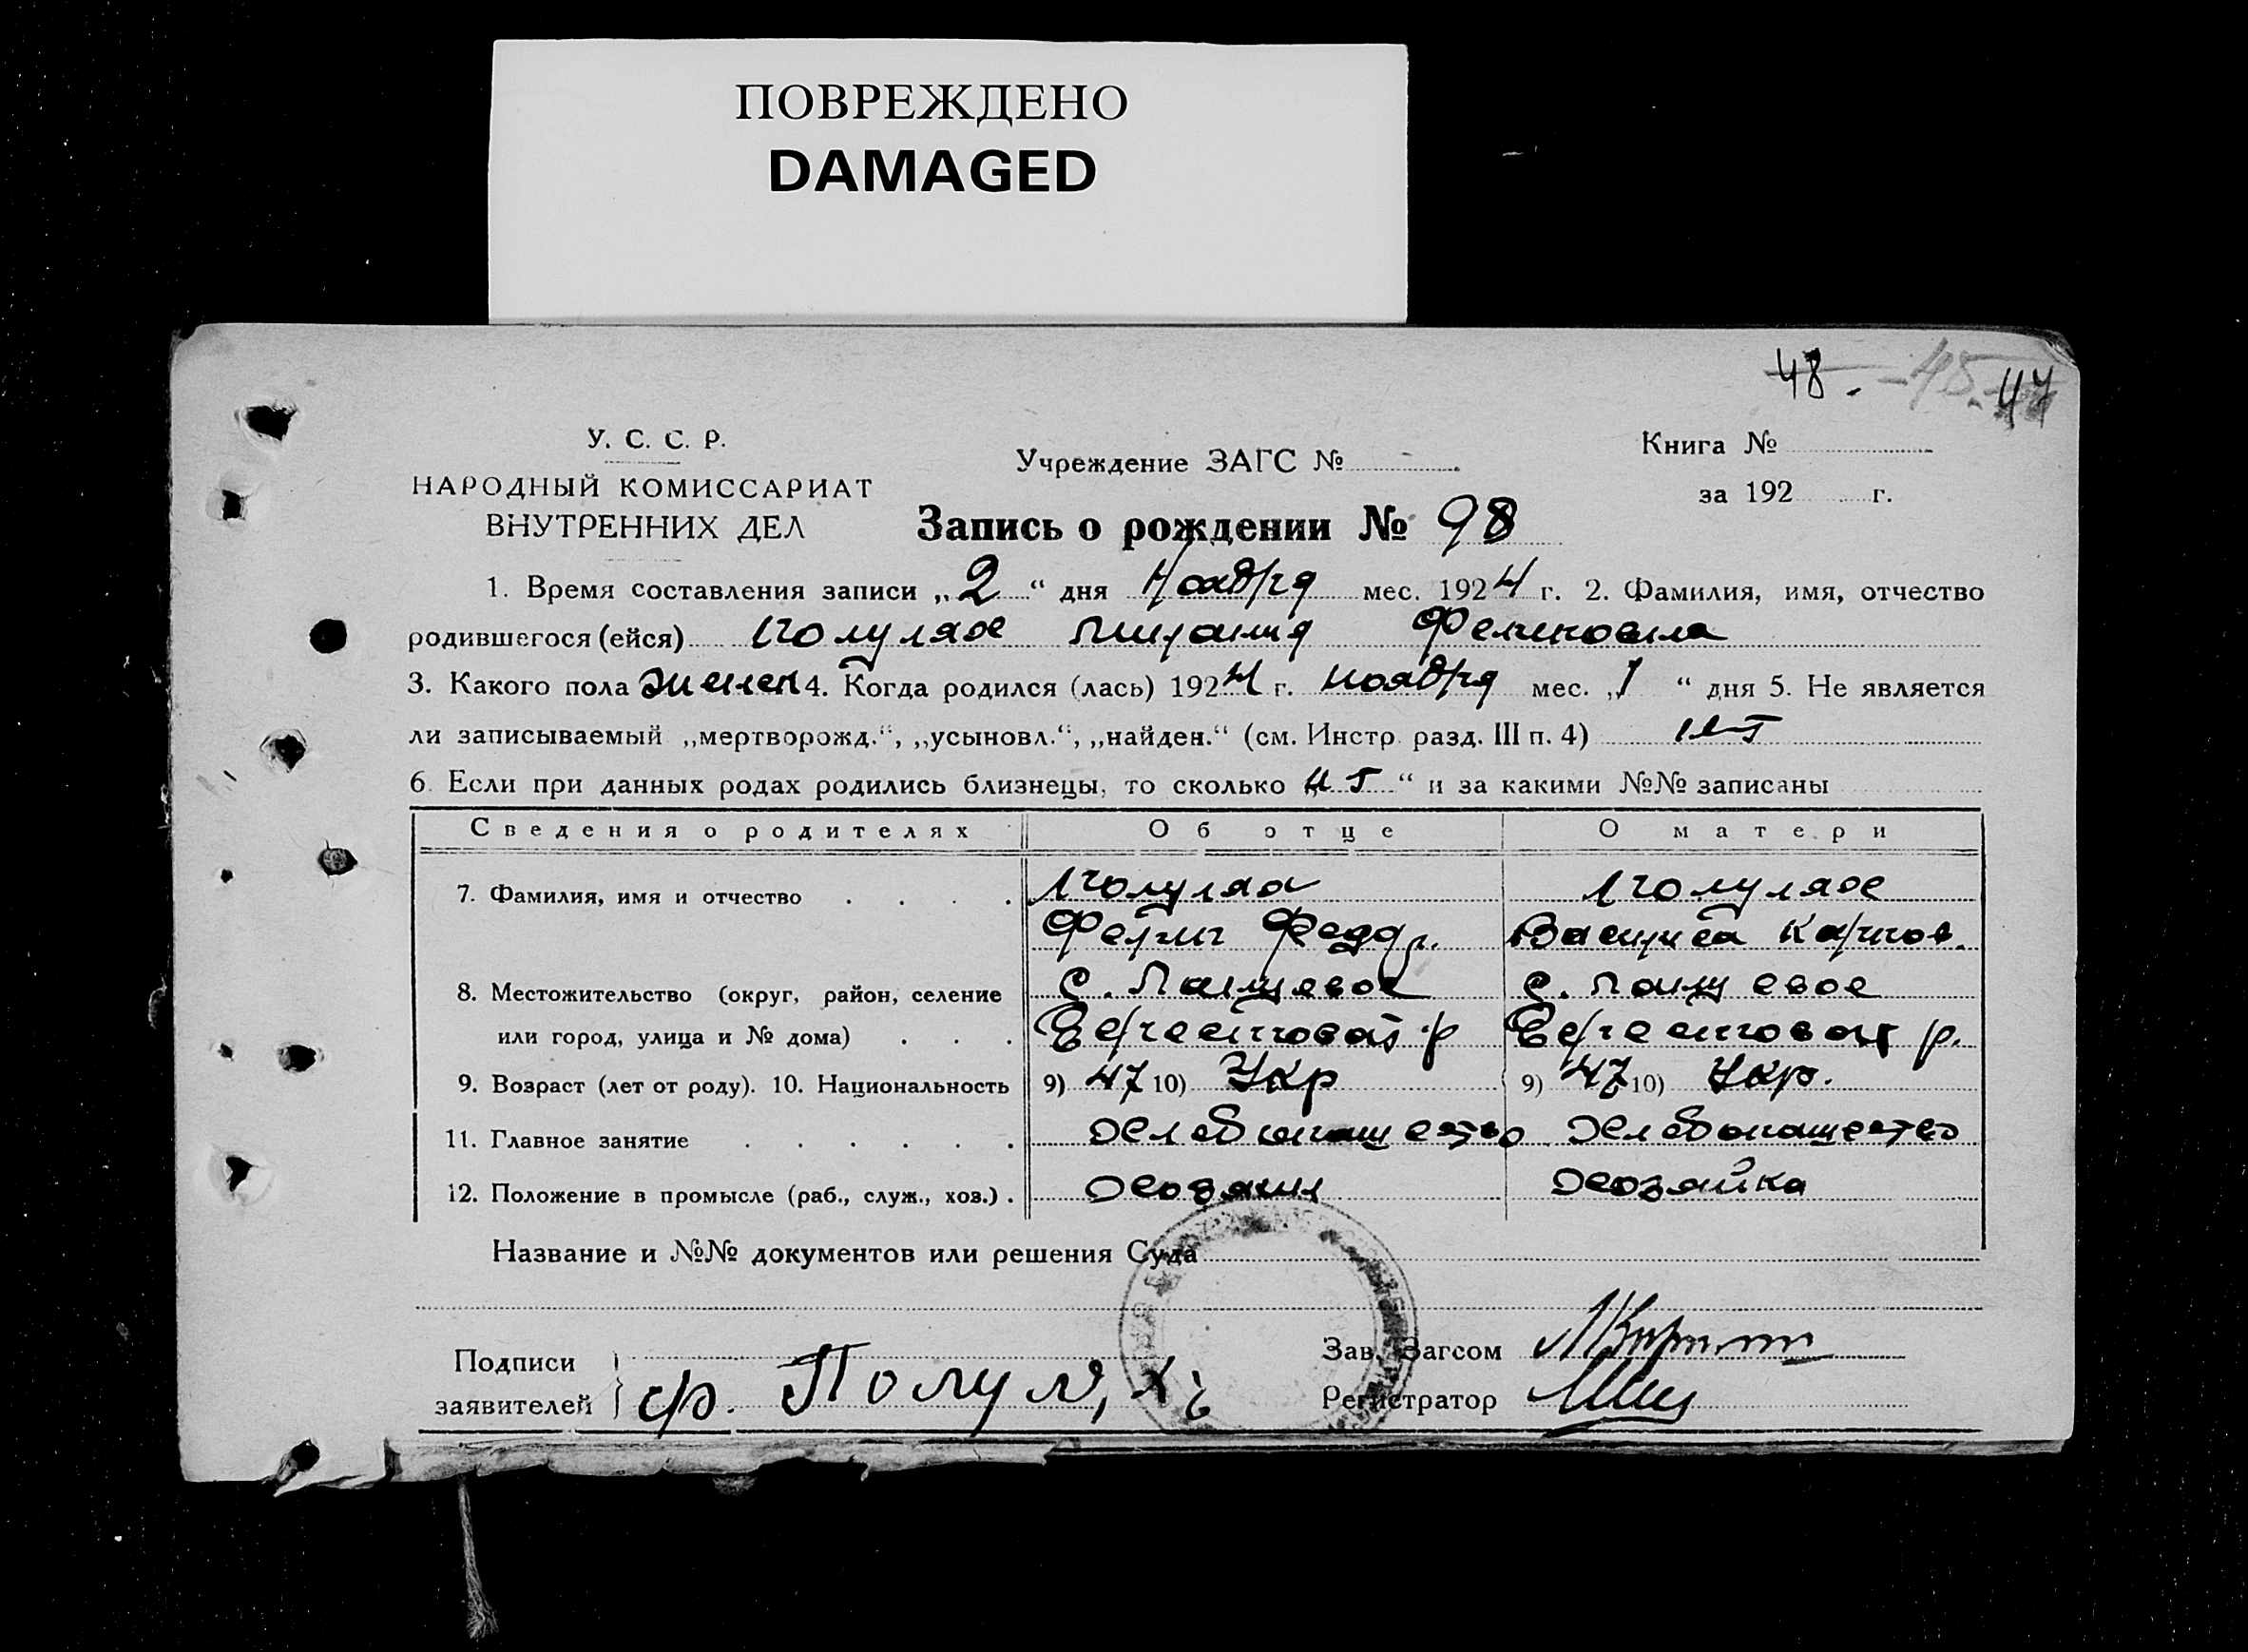 ПОВРЕЖДЕНО
DAMAGED
48. 45. 47
У. С. С. Р.
НАРОДНЫЙ КОМИССАРИАТ
ВНУТРЕННИХ ДЕЛ
Учреждение ЗАГС №
Книга №
за 192 г.
Запись о рождении № 98
1. Время составления записи „2“ дня Ноября мес. 1924 г. 2. Фамилия, имя, отчество
родившегося (ейся) Полулях
3. Какого пола женск 4. Когда родился (лась) 1924 г. ноября мес. „1“ дня 5. Не является
ли записываемый „мертворожд.“, „усыновл.“, „найден.“ (см. Инстр. разд. III п. 4) нет
6. Если при данных родах родились близнецы, то сколько „ “ и за какими №№ записаны
Сведения о родителях Об отце О матери
7. Фамилия, имя и отчество Полулях Полулях
Федд. Василиса Карпов.
8. Местожительство (округ, район, селение с. с.
или город, улица и № дома) р р.
9. Возраст (лет от роду). 10. Национальность 9) 47 10) Укр 9) 47 10) Укр.
11. Главное занятие хлебопашество хлебопашество
12. Положение в промысле (раб., служ., хоз.) хозяин хозяйка
Название и №№ документов или решения Суда
Подписи
заявителей ф. Полулях
Зав. Загсом
Регистратор